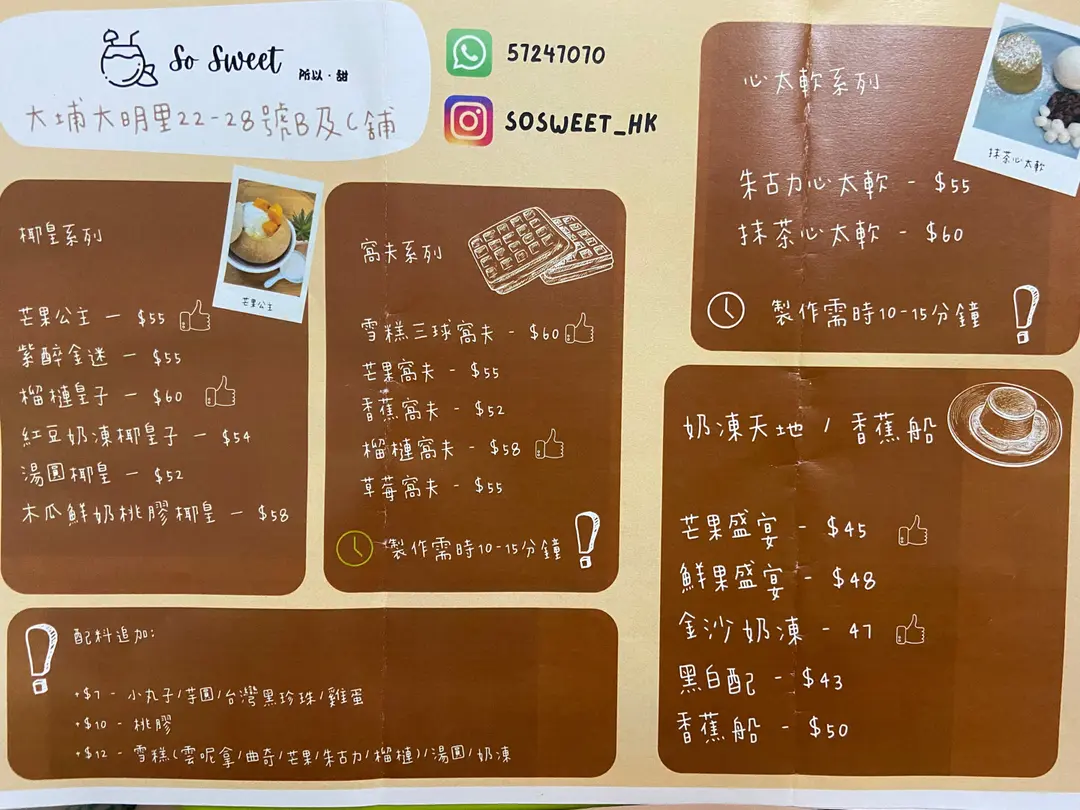 So Sweet 所以·甜
大埔大明里22-28號B及C舖
57247070
SOSWEET_HK
椰皇系列
芒果公主
芒果公主 - $55
紫醉金迷 - $55
榴槤皇子 - $60
紅豆奶凍椰皇子 - $54
湯圓椰皇 - $52
木瓜鮮奶桃膠椰皇 - $58
窩夫系列
雪糕三球窩夫 - $60
芒果窩夫 - $55
香蕉窩夫 - $52
榴槤窩夫 - $58
草莓窩夫 - $55
製作需時10-15分鐘
配料追加:
+$7 - 小丸子/芋圓/台灣黑珍珠/雞蛋
+$10 - 桃膠
+$12 - 雪糕(雲呢拿/曲奇/芒果/朱古力/榴槤)/湯圓/奶凍
心太軟系列
抹茶心太軟
朱古力心太軟 - $55
抹茶心太軟 - $60
製作需時10-15分鐘
奶凍天地 / 香蕉船
芒果盛宴 - $45
鮮果盛宴 - $48
金沙奶凍 - 47
黑白配 - $43
香蕉船 - $50